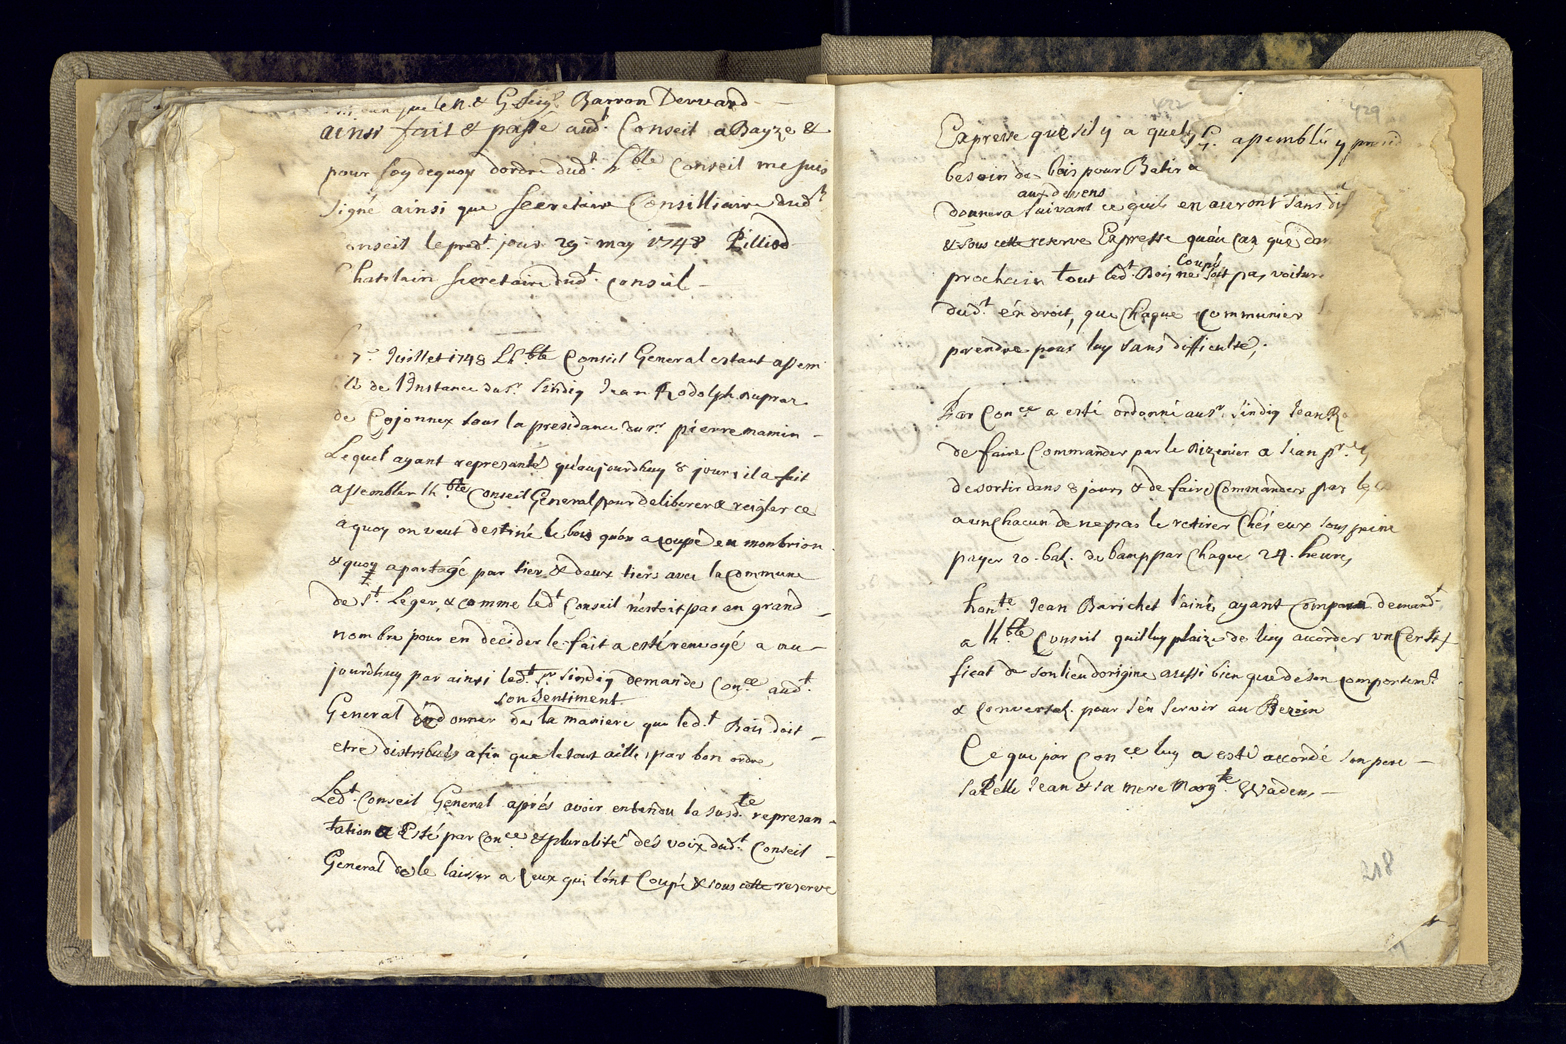 que le N. & G. Seigr. Barron Derward
ainsi fait & passé audt. Conseil a Bayze &
pour foy dequoy d'ordre dudt. hble Conseil me suis
signé ainsi que secretaire Consilliaire dudt
onseil le predt. jour 29e may 1748 Pilliod
Chatelain secretaire dudt. Conseil

7e Juillet 1748 Lhble Conseil General estant assem
blé de l'Instance du sr. sindiq Jean Rodolph nupraz
de Cojonnex sous la presidance du sr. pierre mamin
Lequel ayant represanté qu'aujourdhuy 8 jours il a fait
assembler lhble Conseil General pour deliberer & reigler ce
a quoy on veut destiné le bois qu'on a coupé en monbrion
& quoy a partagé par tier & deux tiers avec la commune
de St. Leger, & comme ledt Conseil n'estoit pas en grand
nombre pour en decider le fait a esté renvoyé a au-
jourdhuy par ainsi ledt. sr sindiq demande Conce audt.
son sentiment
General donner de la maniere que ledt. Bois doit
etre distribués afin que le tout aille par bon ordre

Ledt. Conseil General aprés avoir entendu la susdte represan-
tation a Esté par Conce & pluralité dés voix dudt. Conseil
General de le laisser a Ceux qui l'ont Coupé & sous cette reserve

422
429
Expresse que s'il y a quelq assemblé y prend
besoin de bois pour Batir a
au dessens
donnera suivant ce qu'ils en auront sans di
& sous cette reserve Expresse qu'au caz que dan
Coupé
prochein tout ledt. Bois ne soit pas voitur
dudt. éndroit, que Chaque Communier
prendre pour luy sans difficulté,

Par Conce a esté ordonné au sr. sindiq Jean Ro
de faire Commander par le Dizenier a Jean pre
de sortir dans 8 jours & de faire Commander par le
a un Chacun de ne pas le retirer Chés eux sous peine
payer 20. batz. de bamp par Chaque 24. heure,

honte. Jean Barichet l'ainé, ayant Comparu demandt.
a lhble Conseil quil luy plaize de luy accorder un Certi
ficat de son lieu d'origine aussi bien que de son Comportemt.
& Conversat. pour s'en servir au Bezoin

Ce que par Conce luy a esté accordé son pere
sapelle Jean & sa mere Margte. Waden,

218